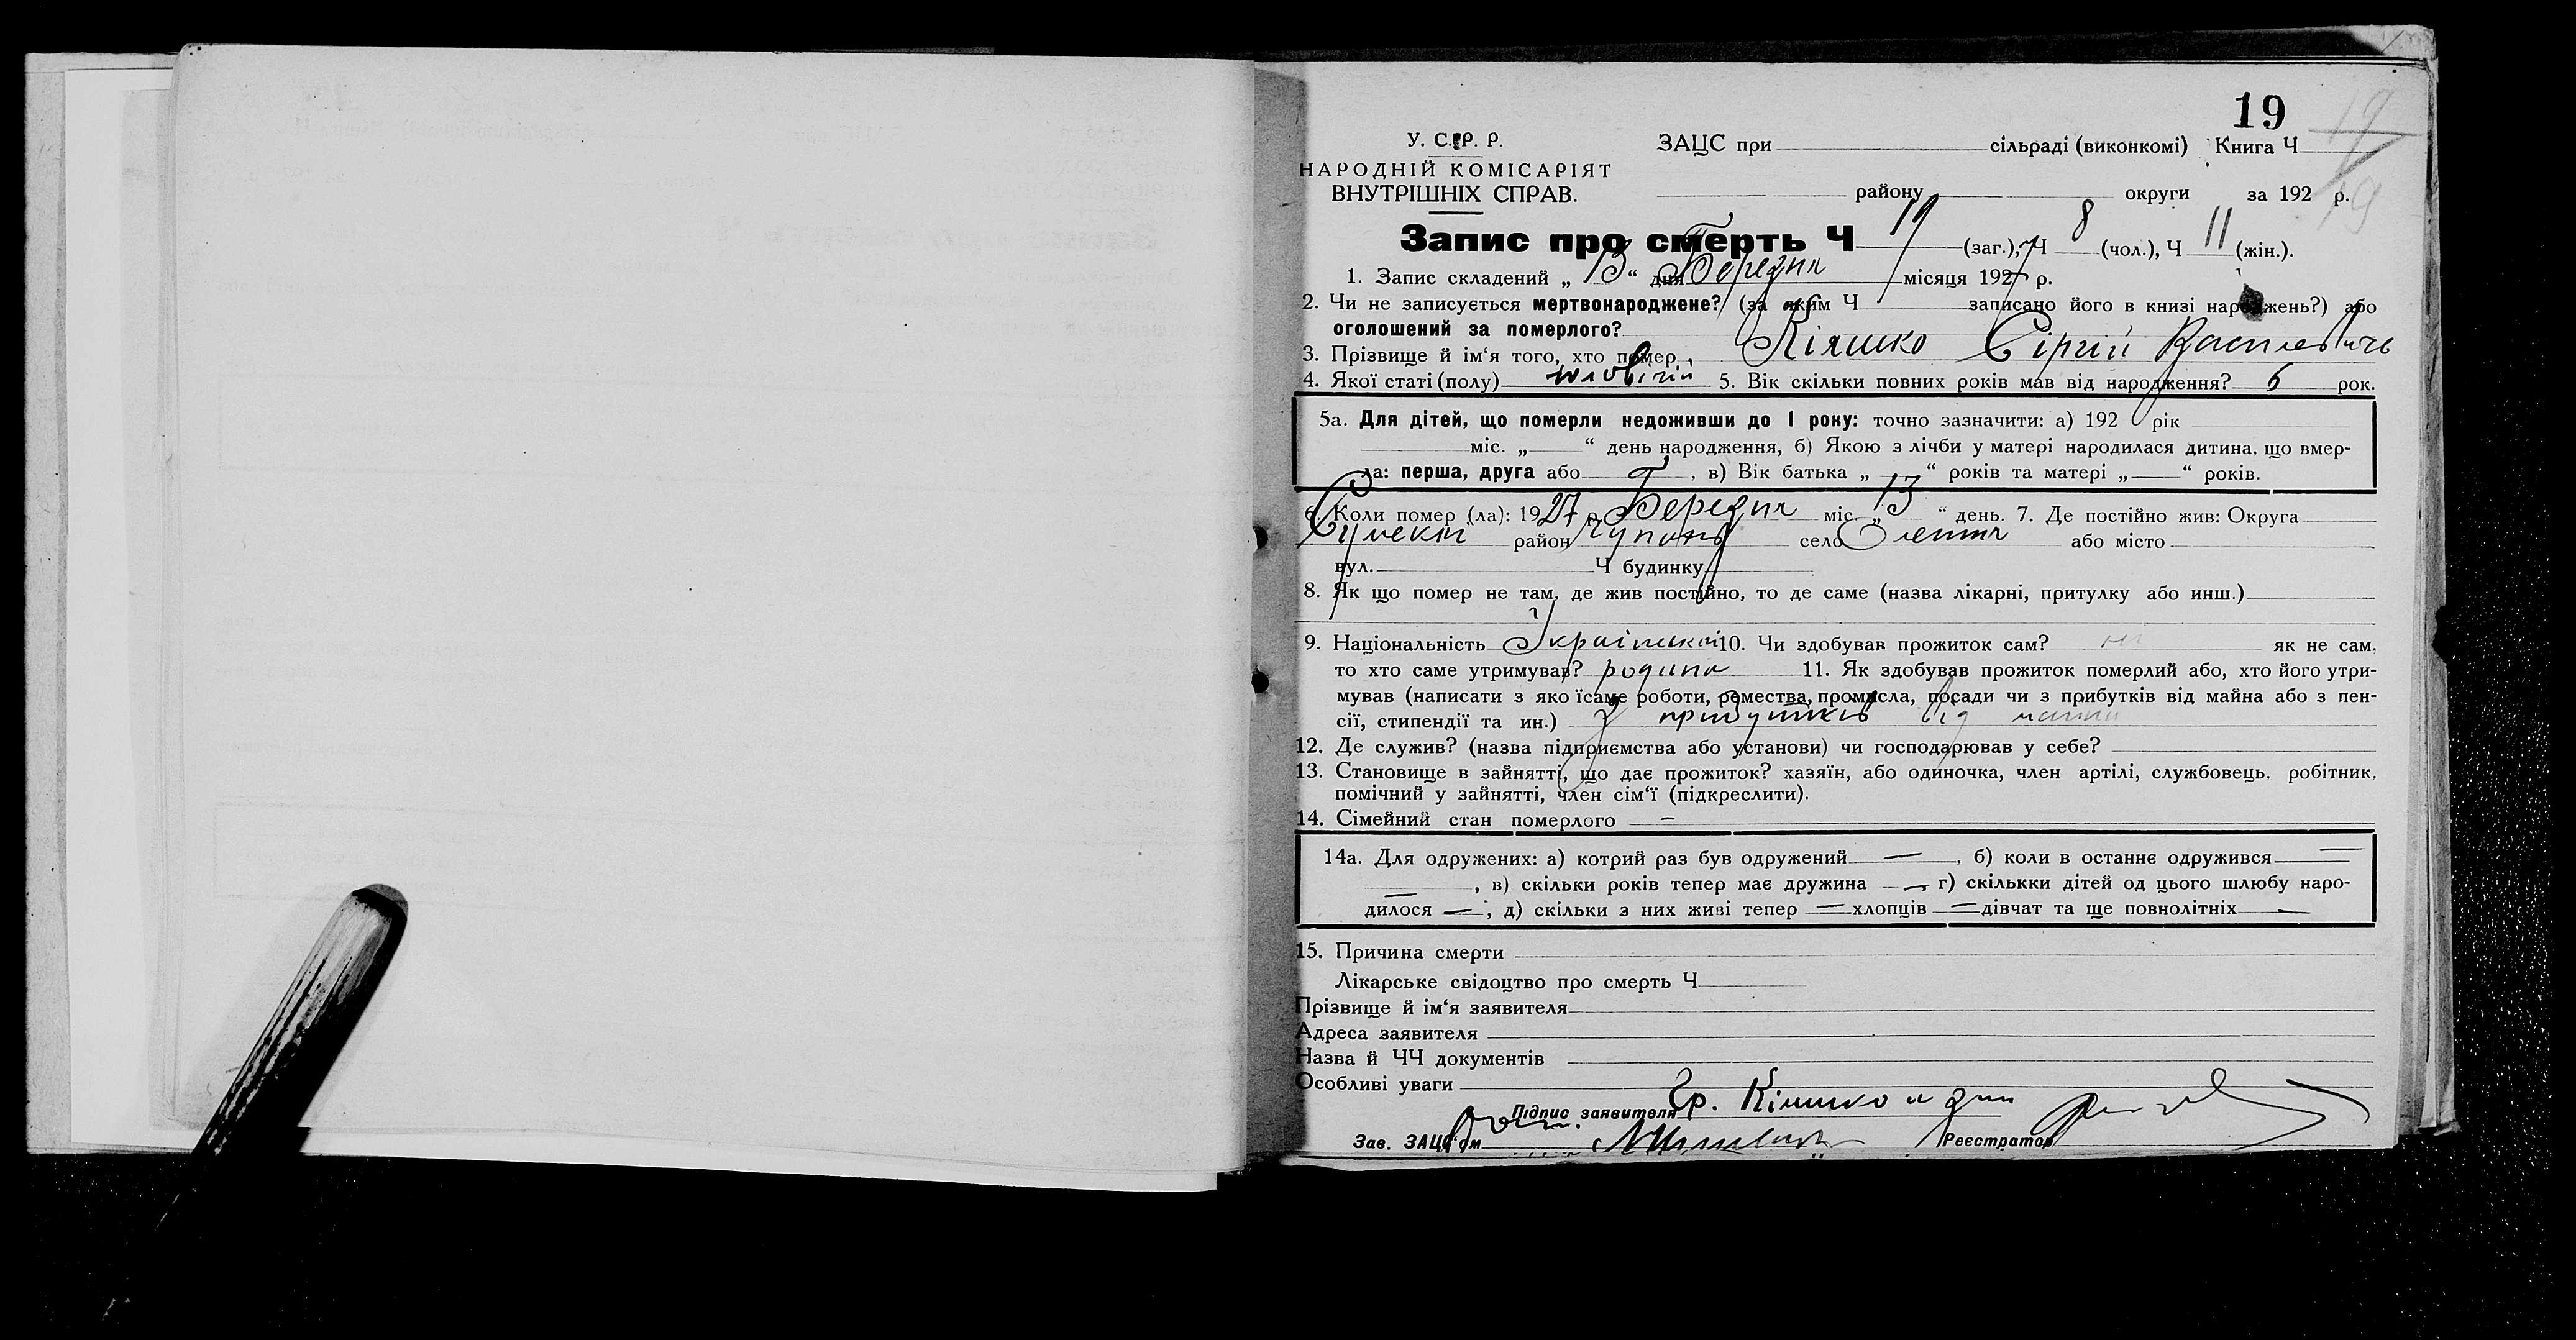 19
У. С. Р. Р. ЗАЦС при сільраді (виконкомі) Книга Ч
НАРОДНІЙ КОМІСАРІЯТ
ВНУТРІШНІХ СПРАВ. району округи за 192 р.
Запис про смерть Ч 19 (заг.), Ч 8 (чол.), Ч 11 (жін.).
1. Запис складений „ 13 “ дня Березня місяця 1927 р.
2. Чи не записується мертвонароджене? (за яким Ч записано його в книзі народжень?) або
оголошений за померлого?
3. Прізвище й ім‘я того, хто помер, Кіяшко Сіргій Василевичь
4. Якої статі (полу) чоловічій 5. Вік скільки повних років мав від народження? 6 рок.
5а. Для дітей, що померли недоживши до 1 року: точно зазначити: а) 192 рік
міс. „ “ день народження, б) Якою з лічби у матері народилася дитина, що вмер-
ла: перша, друга або , в) Вік батька „ “ років та матері „ “ років.
6. Коли помер (ла): 1927 р. Березня міс. „ 13 “ день. 7. Де постійно жив: Округа
Сумский район село або місто
вул. Ч будинку
8. Як що помер не там, де жив постійно, то де саме (назва лікарні, притулку або инш.)
9. Національність 10. Чи здобував прожиток сам? ні як не сам,
то хто саме утримував? родина 11. Як здобував прожиток померлий або, хто його утри-
мував (написати з яко їсаме роботи, ремества, промисла, посади чи з прибутків від майна або з пен-
сії, стипендії та ин.) З прибутків від майна
12. Де служив? (назва підприємства або установи) чи господарював у себе?
13. Становище в зайнятті, що дає прожиток? хазяїн, або одиночка, член артілі, службовець, робітник,
помічний у зайнятті, член сім‘ї (підкреслити).
14. Сімейний стан померлого —
14а. Для одружених: а) котрий раз був одружений — , б) коли в останнє одружився —
— , в) скільки років тепер має дружина — г) скількки дітей од цього шлюбу наро-
дилося — , д) скільки з них живі тепер — хлопців — дівчат та ще повнолітніх —
15. Причина смерти
Лікарське свідоцтво про смерть Ч
Прізвище й ім‘я заявителя
Адреса заявителя
Назва й ЧЧ документів
Особливі уваги
Підпис заявителя Гр. Кіяшко
Зав. ЗАЦС‘ом Реєстратор